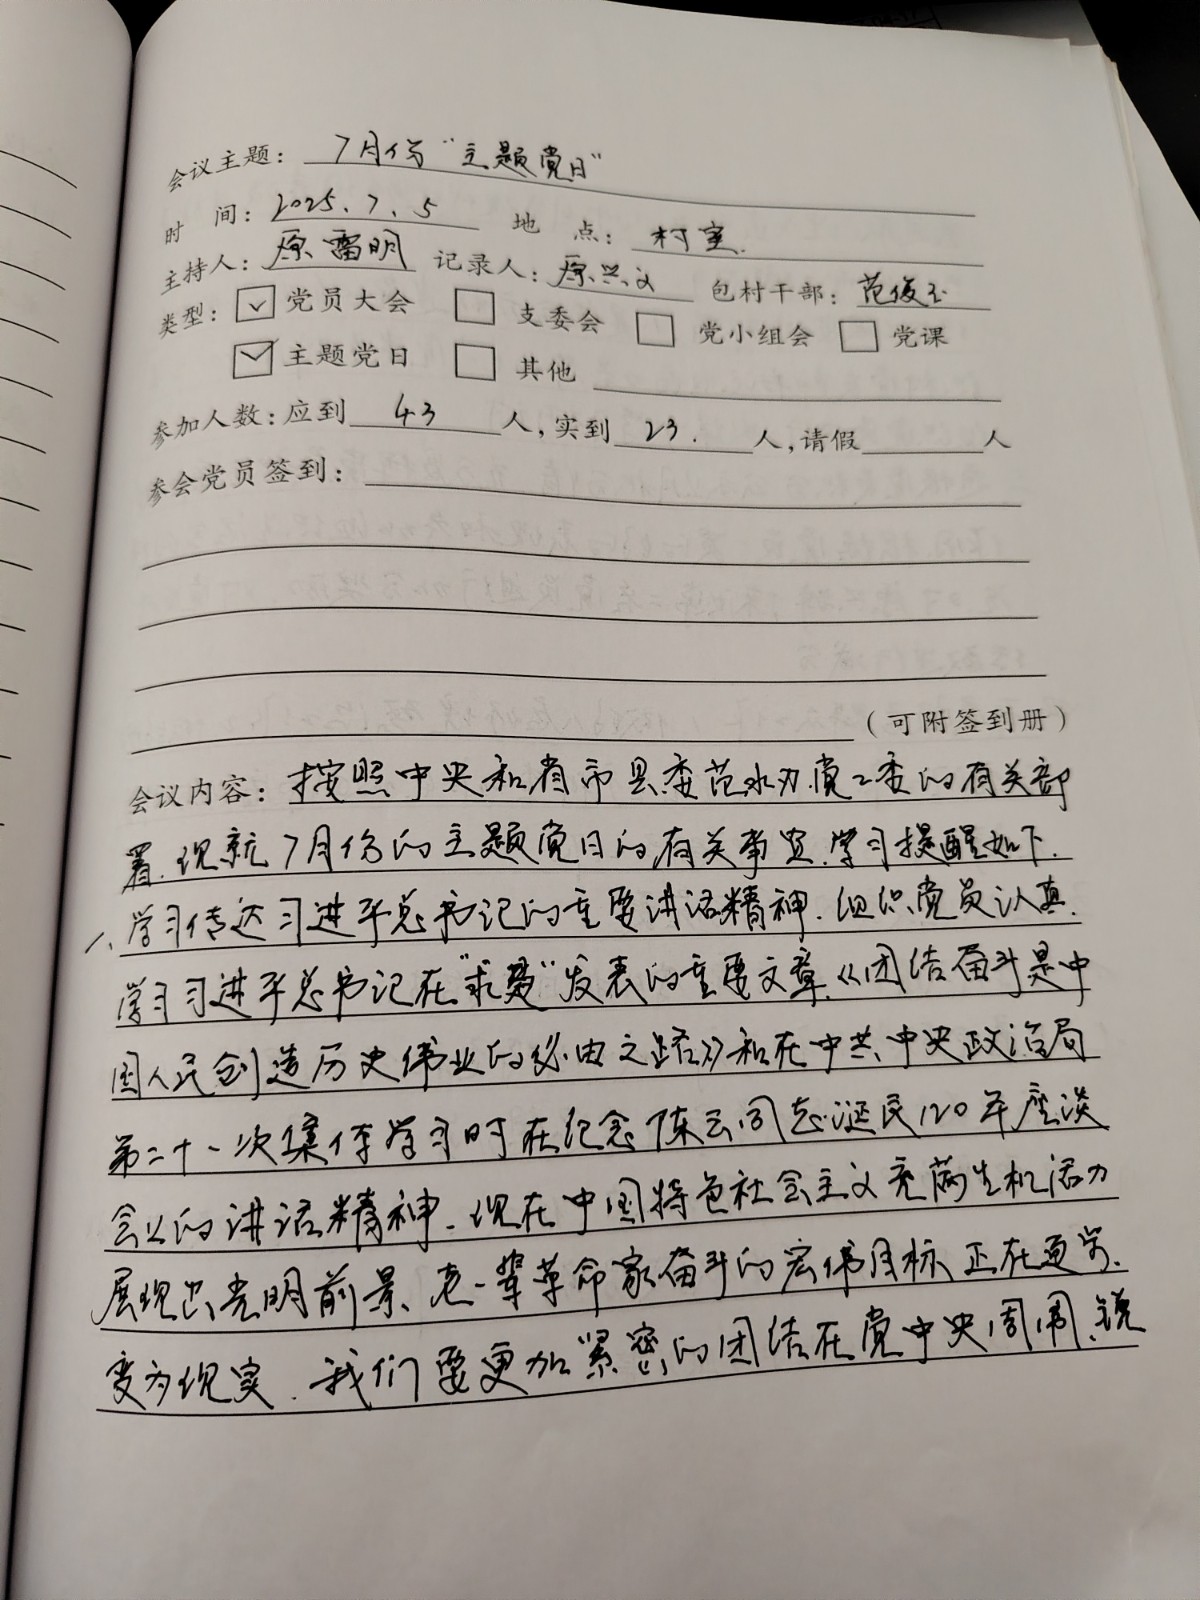 会议主题：7月份“主题党日”
时 间：2025.7.5 地 点：村室.
主持人：原雷明 记录人：原兴义 包村干部：范俊玉
类型：☑党员大会 □支委会 □党小组会 □党课
☑主题党日 □其他
参加人数：应到 43 人，实到 23. 人，请假 人
参会党员签到：
（可附签到册）
会议内容：按照中央和省市县委范水办党工委的有关部
署.现就7月份的主题党日的有关事宜.学习提醒如下.
一、学习传达习进平总书记的重要讲话精神.组织党员认真.
学习习进平总书记在“求是”发表的重要文章.《团结奋斗是中
国人民创造历史伟业的必由之路》和在中共中央政治局
第二十一次集体学习时在纪念陈云同志诞民120年座谈
会上的讲话精神.现在中国特色社会主义充满生机活力
展现出光明前景、老一辈革命家奋斗的宏伟目标正在逐步.
变为现实.我们要更加紧密的团结在党中央周围.锐